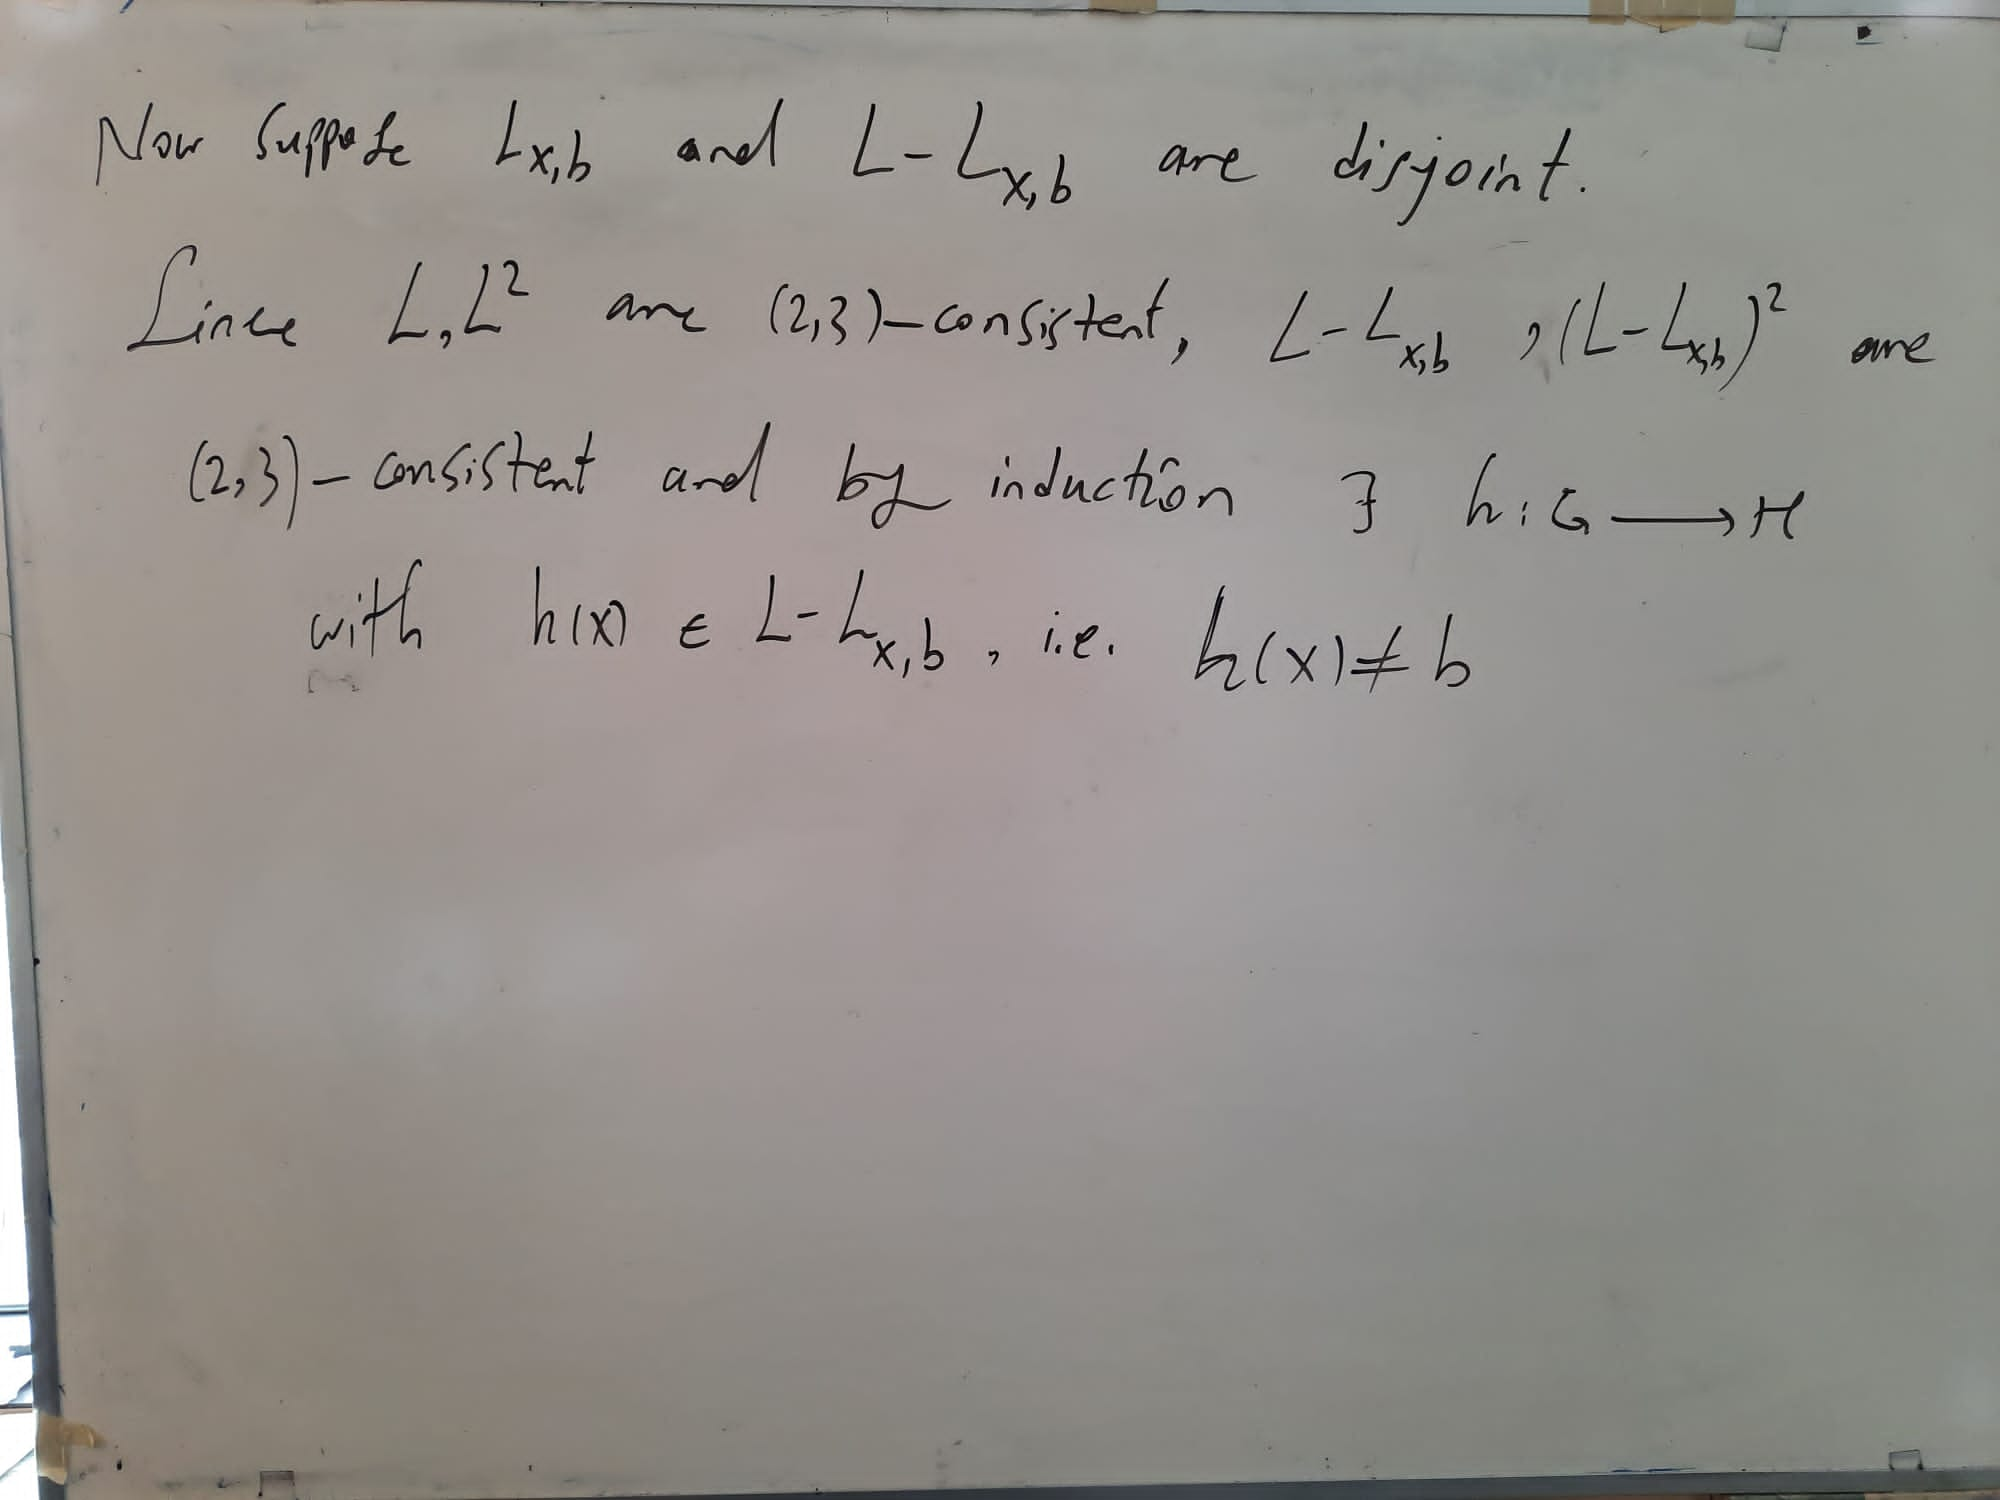 Now suppose L_{x,b} and L - L_{x,b} are disjoint.
Since L, L² are (2,3)-consistent, L - L_{x,b}, (L - L_{x,b})² are
(2,3)-consistent and by induction ∃ h: G ⟶ H
with h(x) ∈ L - L_{x,b}, i.e. h(x) ≠ b